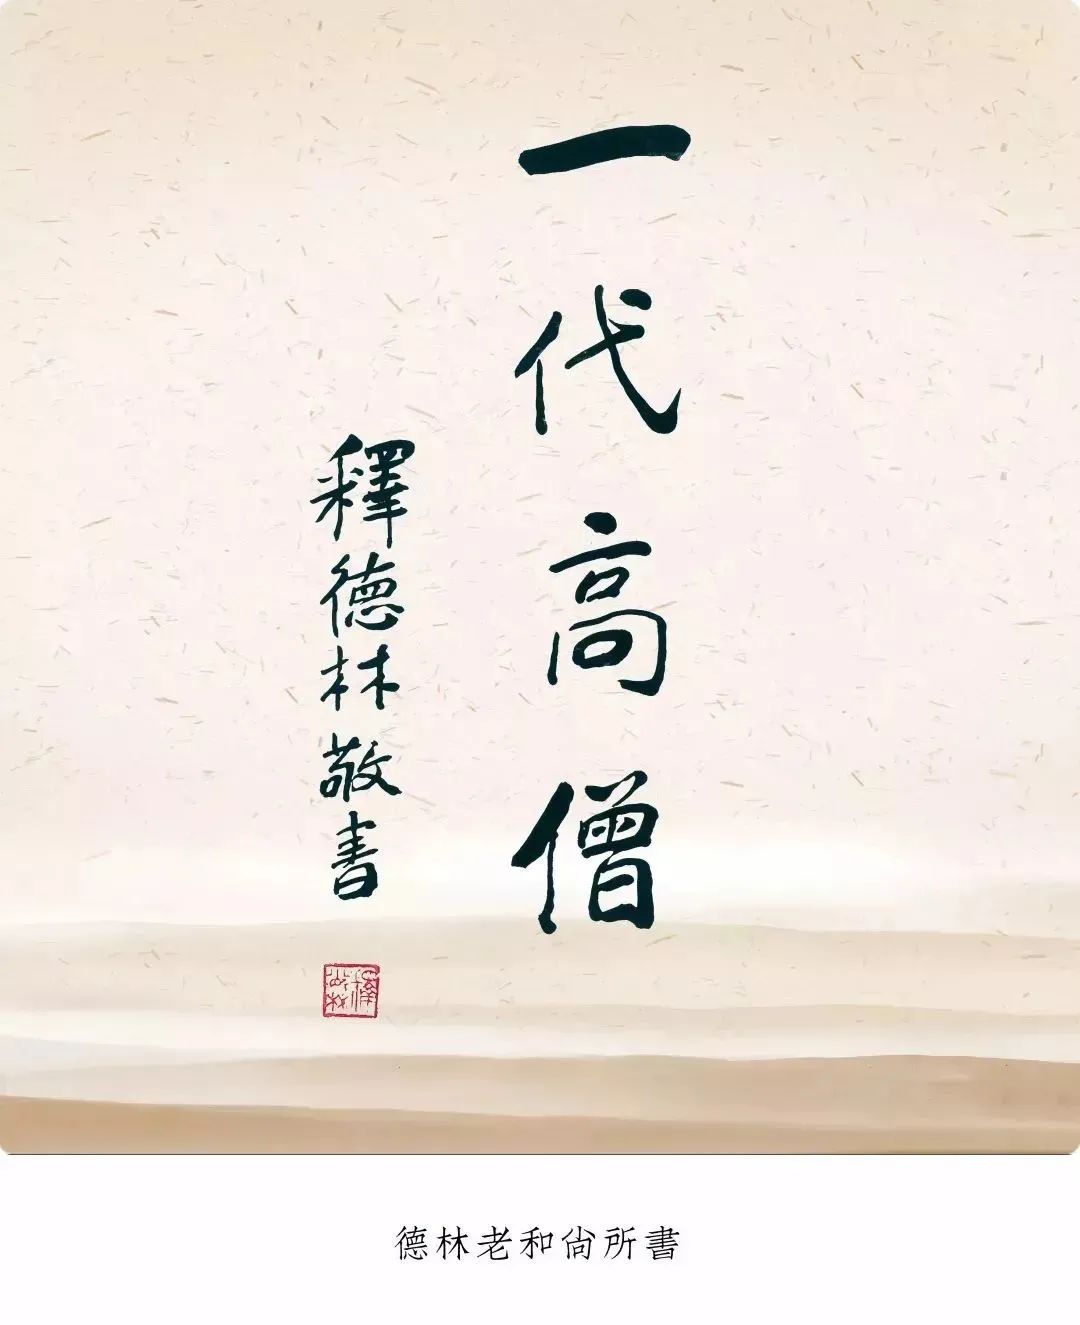 一代高僧
釋德林敬書
德林老和尙所書